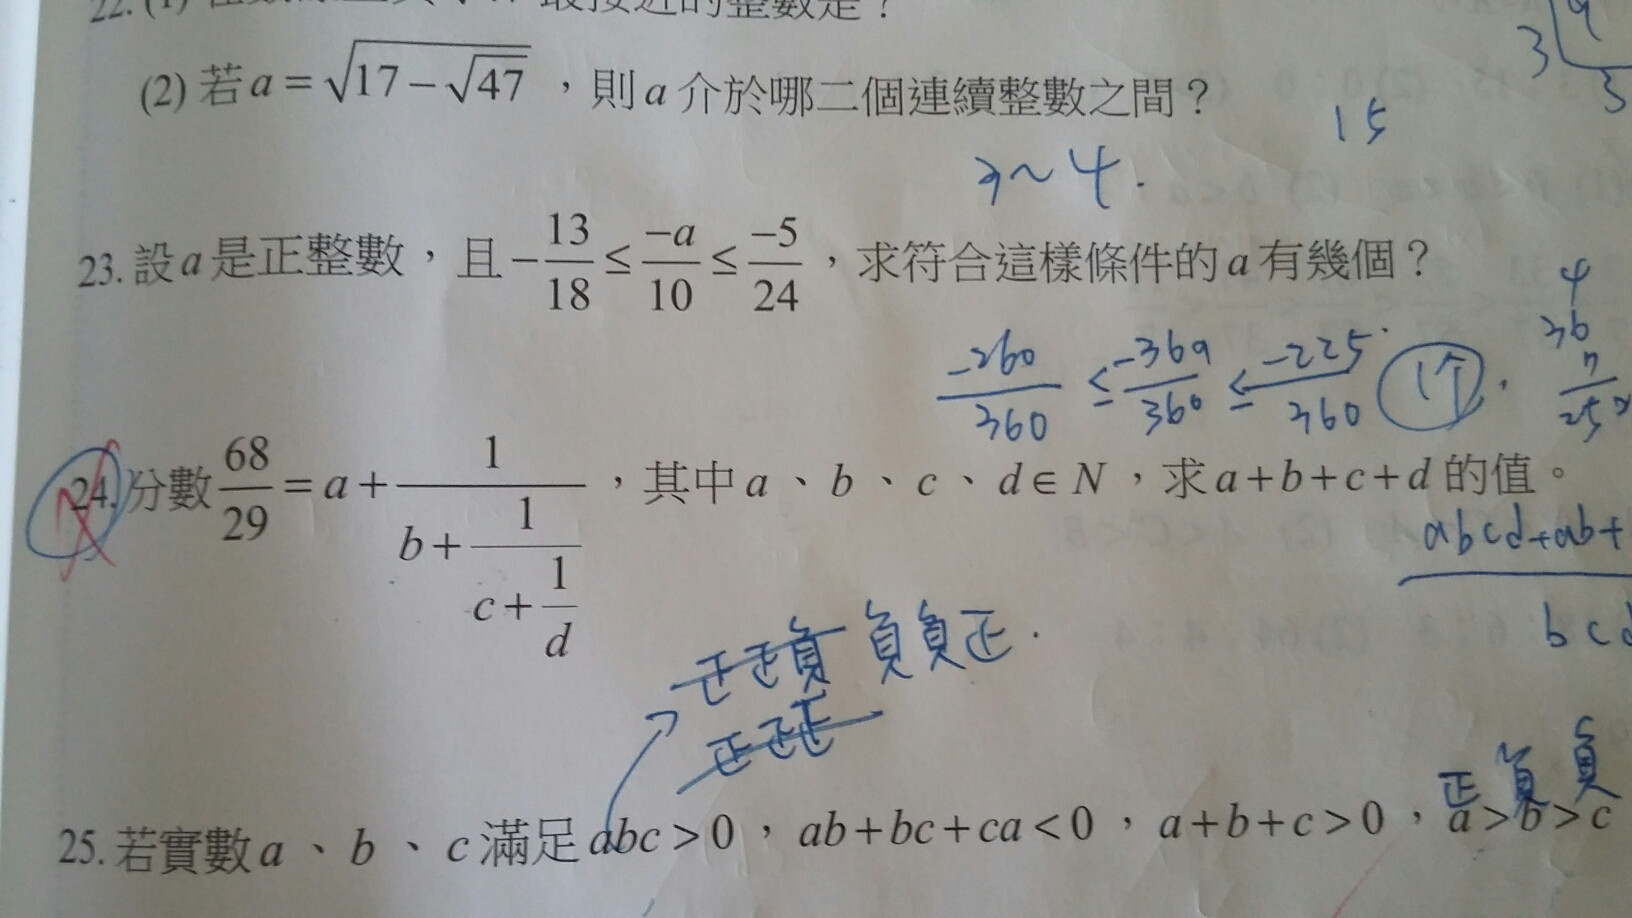 最接近的整數是？
(2) 若 a = √(17 − √47) ，則 a 介於哪二個連續整數之間？
15
3~4.
23. 設 a 是正整數，且 −13/18 ≤ −a/10 ≤ −5/24 ，求符合這樣條件的 a 有幾個？
−260/360 ≤ −36a/360 ≤ −225/360 1个.
24. 分數 68/29 = a + 1/(b + 1/(c + 1/d)) ，其中 a 、 b 、 c 、 d ∈ N ，求 a + b + c + d 的值。
abcd+ab+
bcd
正正負 負負正.
正正正
正 負 負
25. 若實數 a 、 b 、 c 滿足 abc > 0 ， ab + bc + ca < 0 ， a + b + c > 0 ， a > b > c